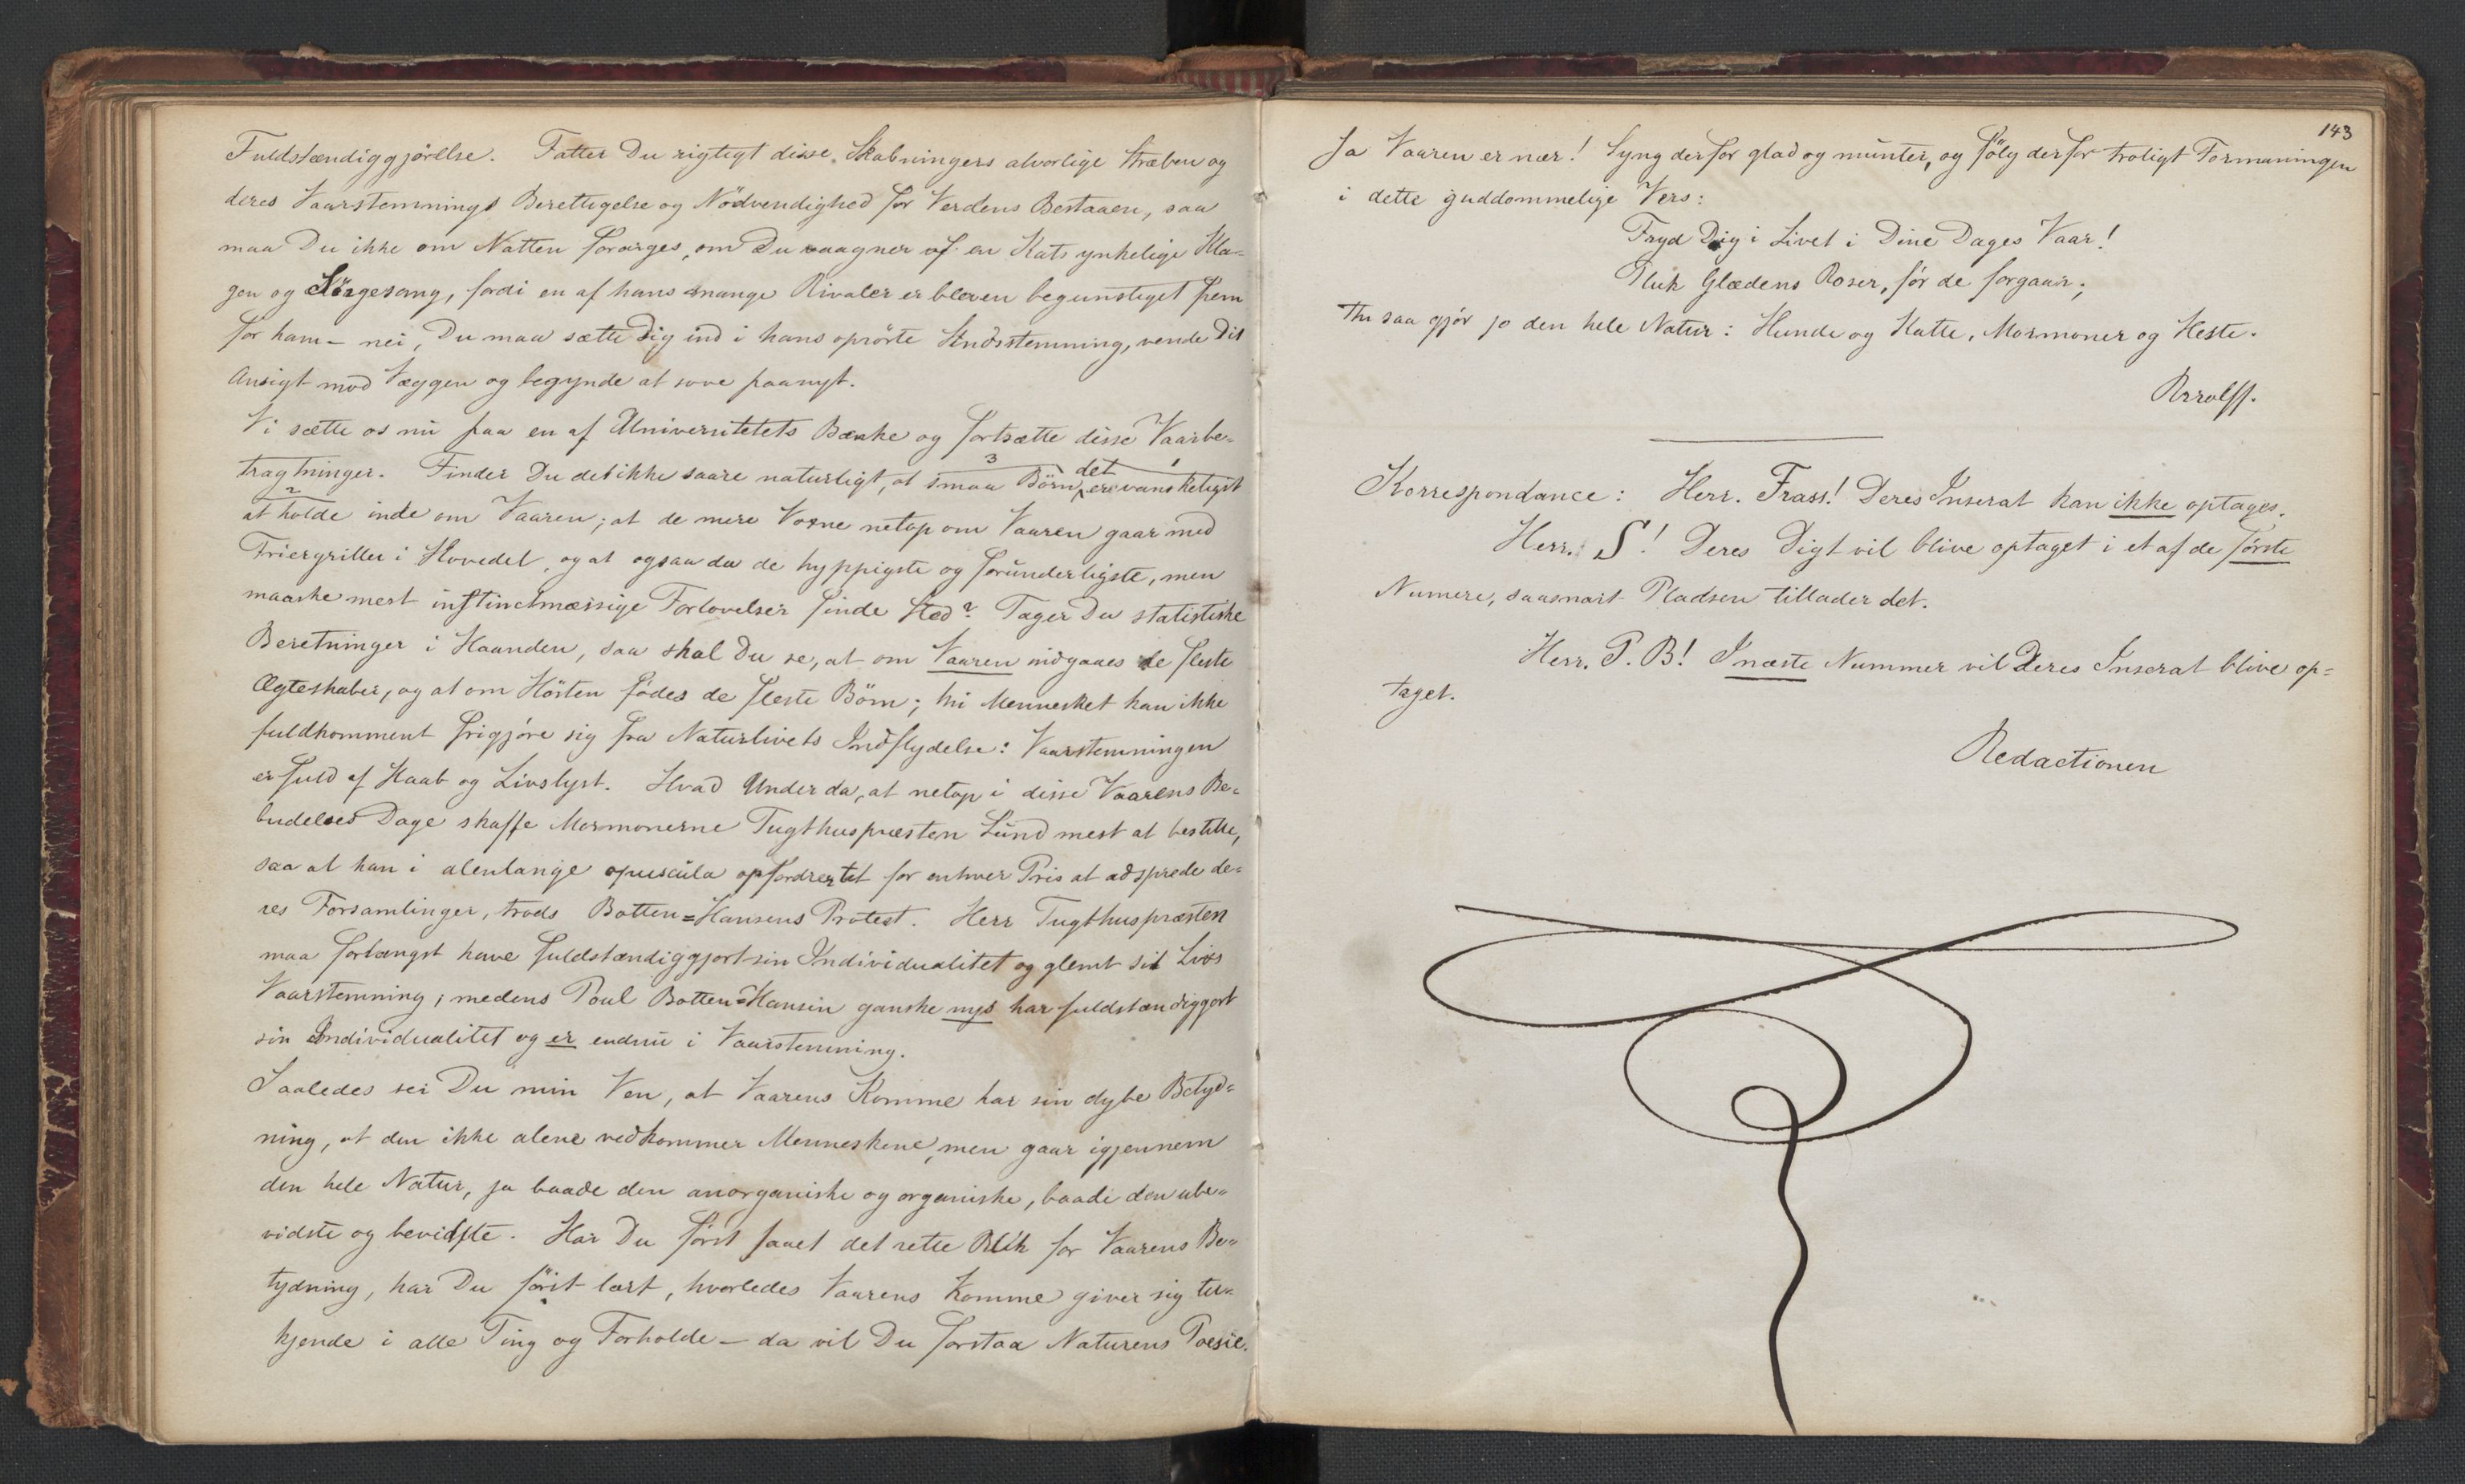 Fuldstændiggjörelse. Fatter Du rigtigt disse Skabningers alvorlige Stræben og
deres Vaarstemnings Berettigelse og Nödvendighed for Verdens Bestaaen, saa
maa Du ikke om Natten forarges, om Du vaagner af en Kats ynkelige Kla-
gen og Sörgesang, fordi en af hans mange Rivaler er bleven begunstiget frem
for ham – nei, Du maa sætte Dig ind i hans oprörte Sindsstemning, vende Dit
Ansigt mod Væggen og begynde at sove paanyt.
Vi sætte os nu paa en af Universitetets Bænke og fortsætte disse Vaarbe-
tragtninger. Finder Du det ikke saare naturligt, at smaa Börn det ere vanskeligst
at holde inde om Vaaren; at de mere Voxne netop om Vaaren gaar med
Friergriller i Hovedet, og at ogsaa da de hyppigste og forunderligste, men
maaske mest instinctmæssige Forlovelser finde Sted? Tager Du statistiske
Beretninger i Haanden, saa skal Du se, at om Vaaren indgaaes de fleste
Ægteskaber, og at om Hösten födes de fleste Börn; thi Mennesket kan ikke
fuldkomment frigjöre sig fra Naturlivets Indflydelse: Vaarstemningen
er fuld af Haab og Livslyst. Hvad Under da, at netop i disse Vaarens Be-
budelses Dage skaffe Mormonerne Tugthuspræsten Lund mest at bestille,
saa at han i alenlange opuscula opfordrer til for enhver Pris at adsprede de-
res Forsamlinger, trods Botten=Hansens Protest. Herr Tugthuspræsten
maa forlængst have fuldstændiggjort sin Individualitet og glemt sit Livs
Vaarstemning, medens Poul Botten=Hansen ganske nys har fuldstændiggort
sin Individualitet og er endnu i Vaarstemning.
Saaledes ser Du min Ven, at Vaarens Komme har sin dybe Betyd-
ning, at den ikke alene vedkommer Menneskene, men gaar igjennem
den hele Natur, ja baade den anorganiske og organiske, baade den ube-
vidste og bevidste. Har Du först faaet det rette Blik for Vaarens Be-
tydning, har Du först lært, hvorledes Vaarens Komme giver sig til-
kjende i alle Ting og Forholde – da vil Du forstaa Naturens Poesie.
143
Ja Vaaren er nær! Syng derfor glad og munter, og fölg derfor troligt Formaningen
i dette guddommelige Vers:
Fryd Dig i Livet i Dine Dages Vaar!
Pluk Glædens Roser, för de forgaar;
Thi saa gjör jo den hele Natur: Hunde og Katte, Mormoner og Heste.
Rrrolff.
Korrespondance: Herr. Frass! Deres Inserat kan ikke optages.
Herr. S! Deres Digt vil blive optaget i et af de förste
Numere, saasnart Pladsen tillader det.
Herr. P. B! I næste Nummer vil Deres Inserat blive op=
taget.
Redactionen